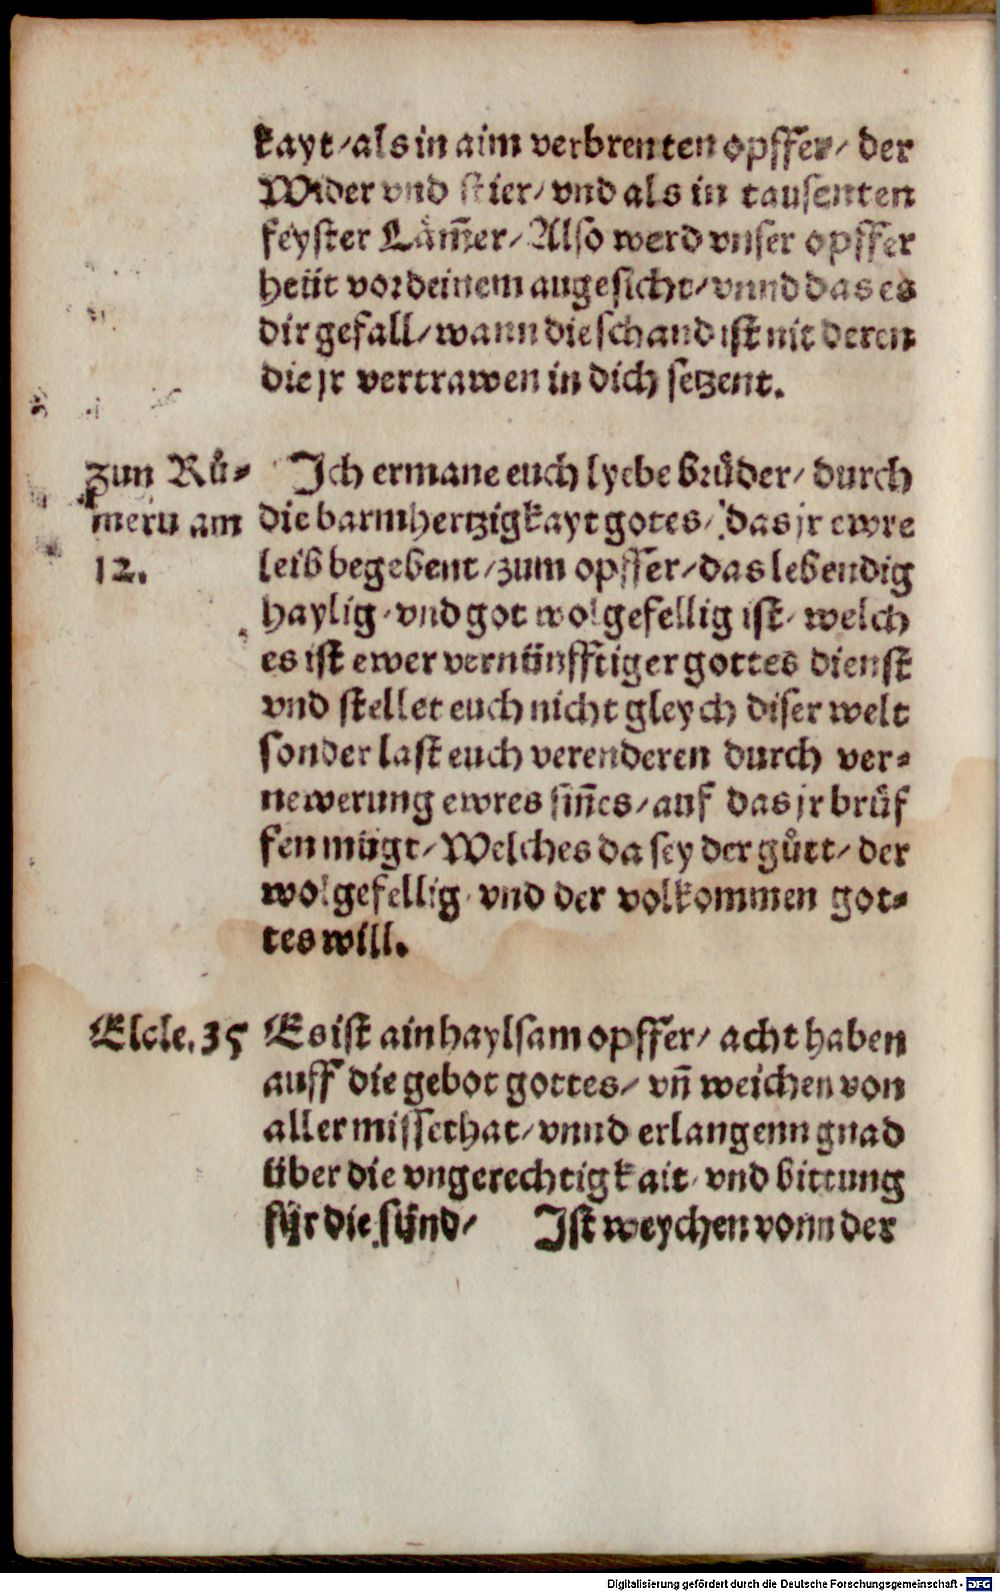 kayt/ als in aim verbrenten opffer/ der
Wider vnd stier/ vnd als in tausenten
feyster Läm̄er/ Also werd vnser opffer
heüt vor deinem angesicht/ vnnd das es
dir gefall/ wann die schand ist nit deren
die jr vertrawen in dich setzent.
zun Rü-
mern am
12.
Ich ermane euch lyebe brůder/ durch
die barmhertzigkayt gotes/ das jr ewre
leib begebent/ zum opffer/ das lebendig
haylig/ vnd got wolgefellig ist/ welch
es ist ewer vernünfftiger gottes dienst
vnd stellet euch nicht gleych diser welt
sonder last euch verenderen durch ver-
newerung ewres sin̄es/ auf das jr brůf
fen mügt/ Welches da sey der gůtt/ der
wolgefellig/ vnd der volkommen got-
tes will.
Elcle. 35
Es ist ain haylsam opffer/ acht haben
auff die gebot gottes/ vn̄ weichen von
aller missethat/ vnnd erlangenn gnad
über die vngerechtigkait/ vnd bittung
für die sünd/ Ist weychen vonn der
Digitalisierung gefördert durch die Deutsche Forschungsgemeinschaft - DFG